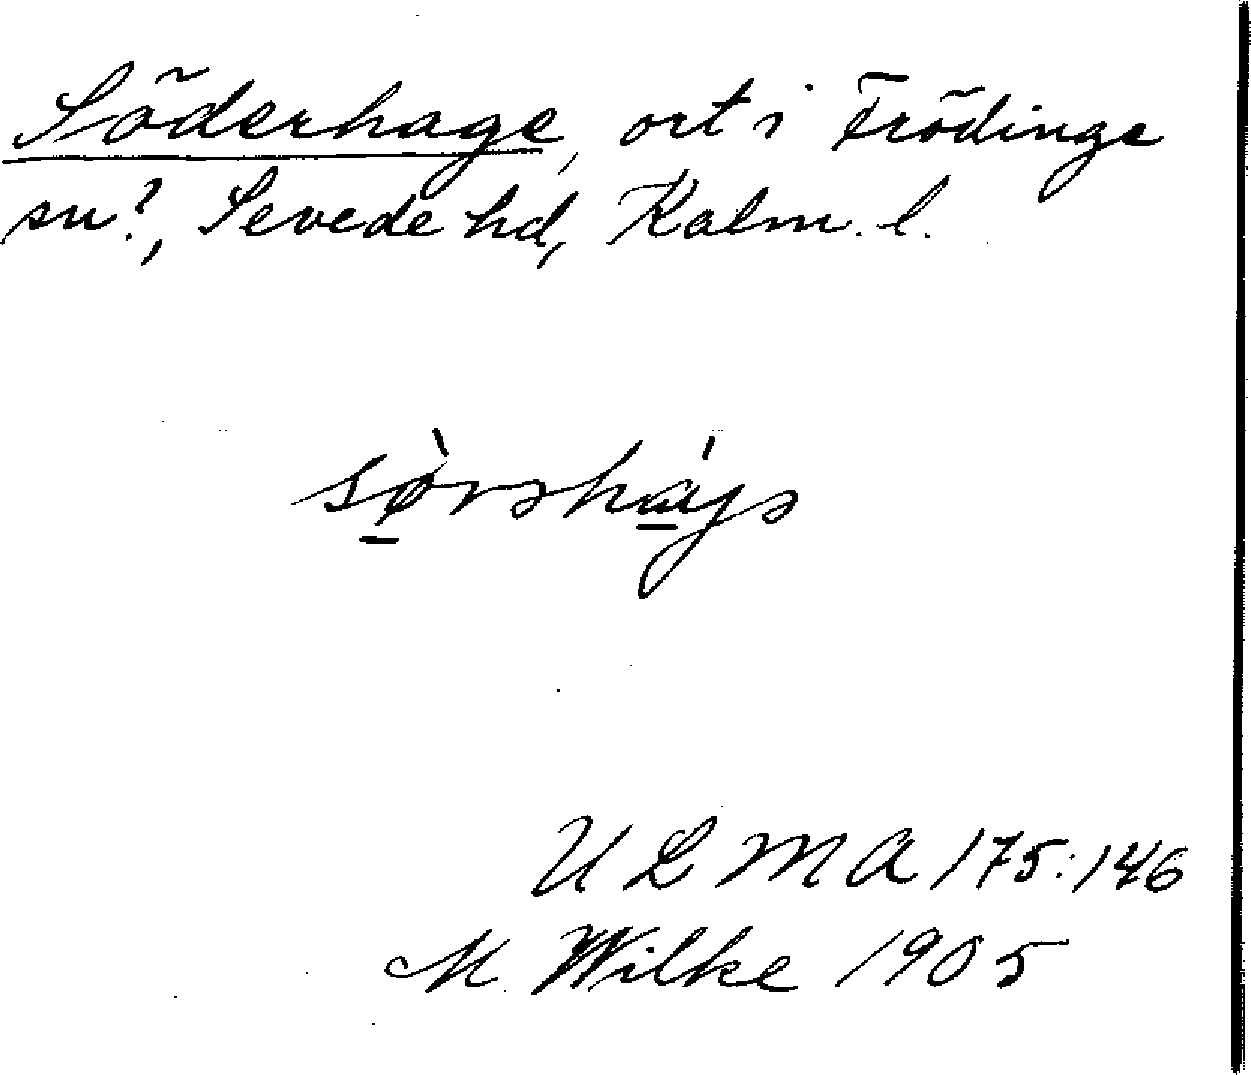 Söderhage, ort i Frödinge
sn?, Sevede hd, Kalm. l.
sø̀rəhájə
ULMA 175:146
M. Wilke 1905